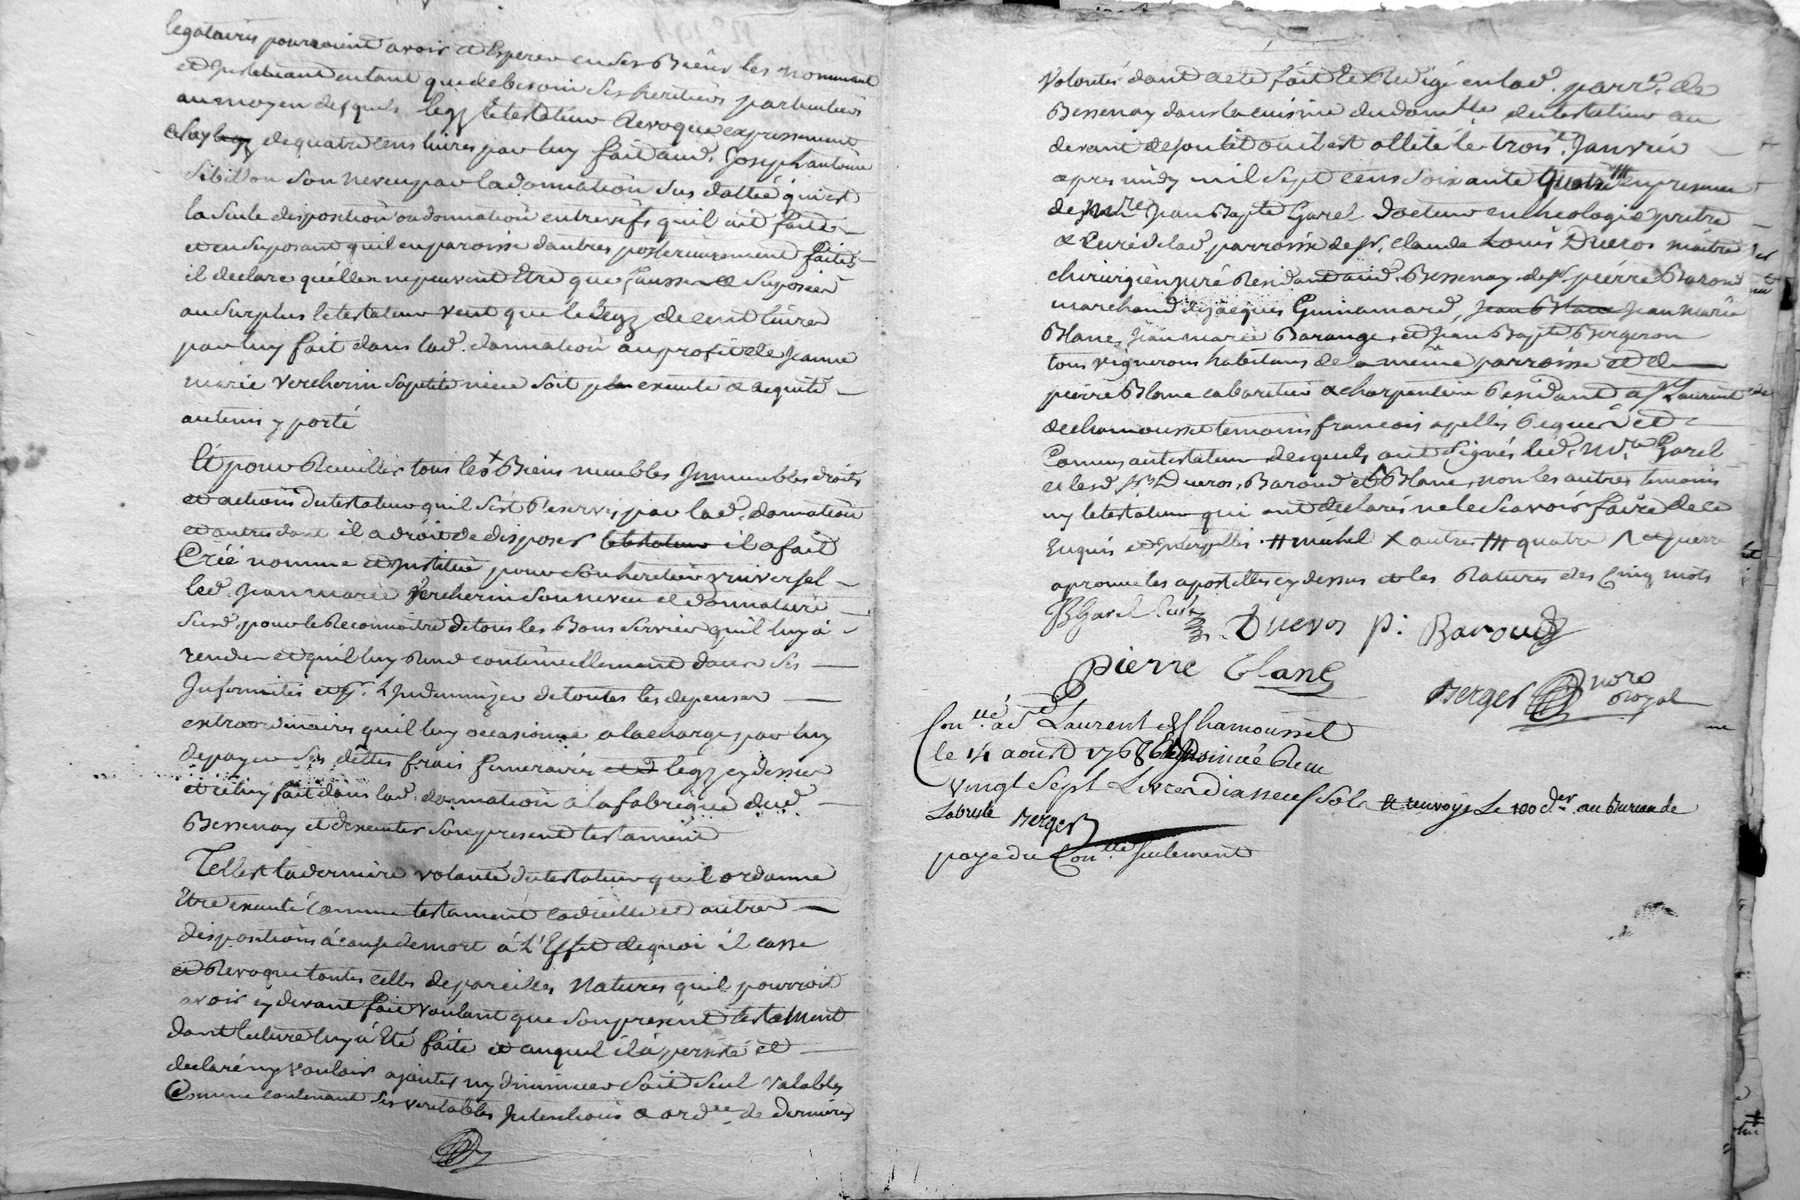 legataires pourroient avoir et Esperer en ses Biens les nommant
et Instituant entant que de besoin ses heritiers particuliers
au moyen desquels legz le testateur Revoque expressement
celuy legz de quatre cens livres par luy fait aud. Joseph antoine
Sibillon son neveu par la donnation sus dattée qui est
la seule disposition ou donnation entrevifs qu'il ait faite
et en suposant qu'il en paroisse d'autres posterieurement faites
il declare qu'elles ne peuvent Etre que fausses et suposées
au surplus le testateur veut que le legz de cent livres
par luy fait dans lad. donnation au profit de Jeanne
marie vercherin sa petite niece soit executé & aquité
au tems y porté
Et pour Recueillir tous les Biens meubles Immeubles droits
et actions du testateur qu'il s'est Reservés par lad. donnation
et autres dont il a droit de disposer le testateur il a fait
Créé nommé et Institué pour son heritier vniversel
led. Jean marie Vercherin son neveu et donnataire
susd. pour le Reconnoitre de tous les Bons services qu'il luy a
rendus et qu'il luy Rend continuellement dans ses
Infirmités et Indemnizer de toutes les depenses
extraordinaires qu'il luy occasionne a la charge par luy
de payer ses dettes frais funeraires et legz cy dessus
et celuy fait dans lad. donnation a la fabrique dud.
Bessenay et d'executer son present testament
Telle est la derniere volonté du testateur qu'il ordonne
Etre executé comme testament codicille et autres
dispositions à cause de mort à L'Effet de quoi il casse
et Revoque toutes celles de pareilles Natures qu'il pourroit
avoir cy devant fait voulant que son present testament
dont lecture luy à Eté faite et auquel il a persisté et
declaré n'y vouloir ajouter ny diminuer soit seul valable
Comme contenant ses veritables Intentions & ord.re de dernieres
volontés dont acte fait et Redigé en lad. parr.e de
Bessenay dans la cuisine du dom.lle du testateur au
devant de son lit ou il est allité le trois.e Janvier
apres midy mil sept cens soixante Quatre en presence
de M.re Jean Bap.te Garel Docteur en theologie pretre
& Curé de lad. parroisse de S.r Claude Louis Ducros maitre
chirurgien juré Residant aud. Bessenay, de S.r pierre Baroud
marchand de jacques Guinamard, Jean Blanc Jean Marie
Blanc, Jean marie Barange, et Jean Bap.te Bergeron
tous vignerons habitans de la même parroisse et de
pierre Blanc cabaretier & charpentier Residant a S.t Laurent
de chamousset temoins francois apellés Requis et
Connus au testateur desquels ont signés led. M.re Garel
et lesd. S.rs Ducros, Baroud et P. Blanc, non les autres temoins
ny le testateur qui ont declarés ne le scavoir faire de ce
Enquis et Interpellés # michel X autres ## quatre
aprouve les apostilles cy dessus et les Ratures des cinq mots
JB Garel Curé
Ducros P. Baroud
pierre blanc
Berger no.re Royal
Con.llé à S.t Laurent de Chamousset
le 14 aoust 176
vingt Sept Livres dixneuf sols et renvoyé Le 100 d.er au Bureau de
Labresle Berger
payé du Con.lle seulement